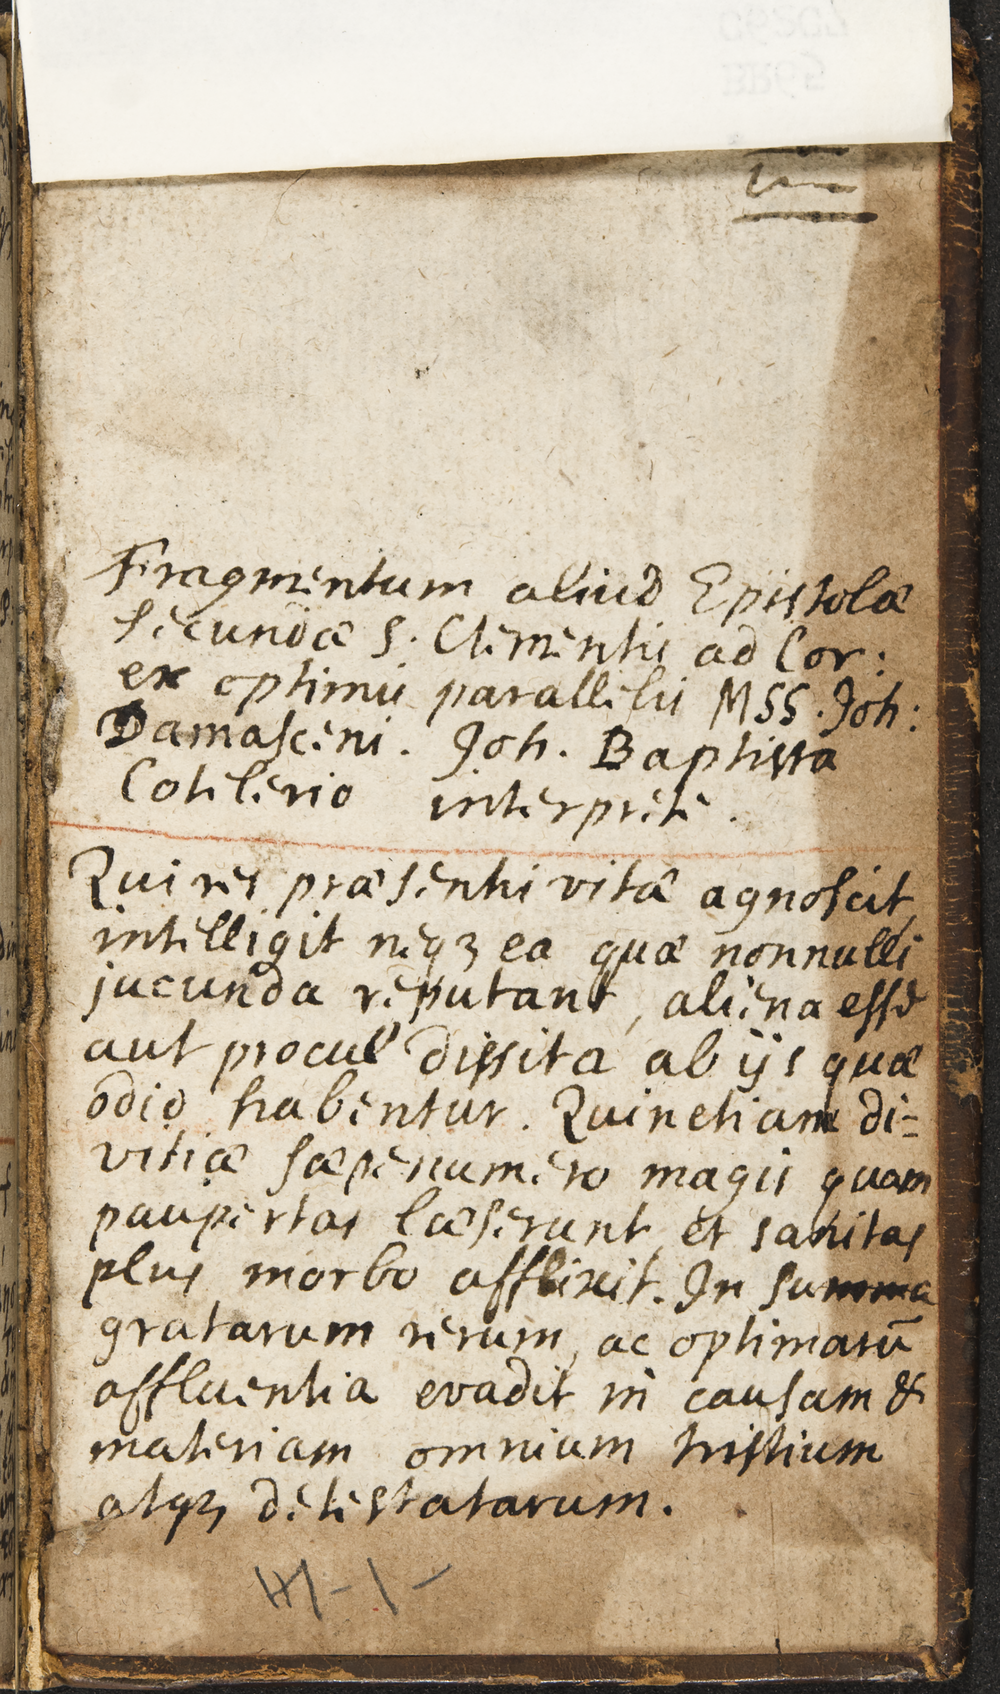 Fragmentum aliud Epistolæ
secundæ S. Clementis ad Cor:
ex optimis parallelis MSS. Joh:
Damasceni. Joh. Baptista
Cotelerio interprete.
Qui res præsentis vitæ agnoscit,
intelligit neqꝫ ea quæ nonnulli
jucunda reputant, aliena esse
aut procul dissita ab ijs quæ
odio habentur. Quinetiam di-
vitiæ sæpenumero magis quam
paupertas læserunt, et sanitas
plus morbo afflixit. In summa
gratarum rerum, ac optimarū
affluentia evadit in causam &
materiam omnium tristium
atqꝫ detestatarum.